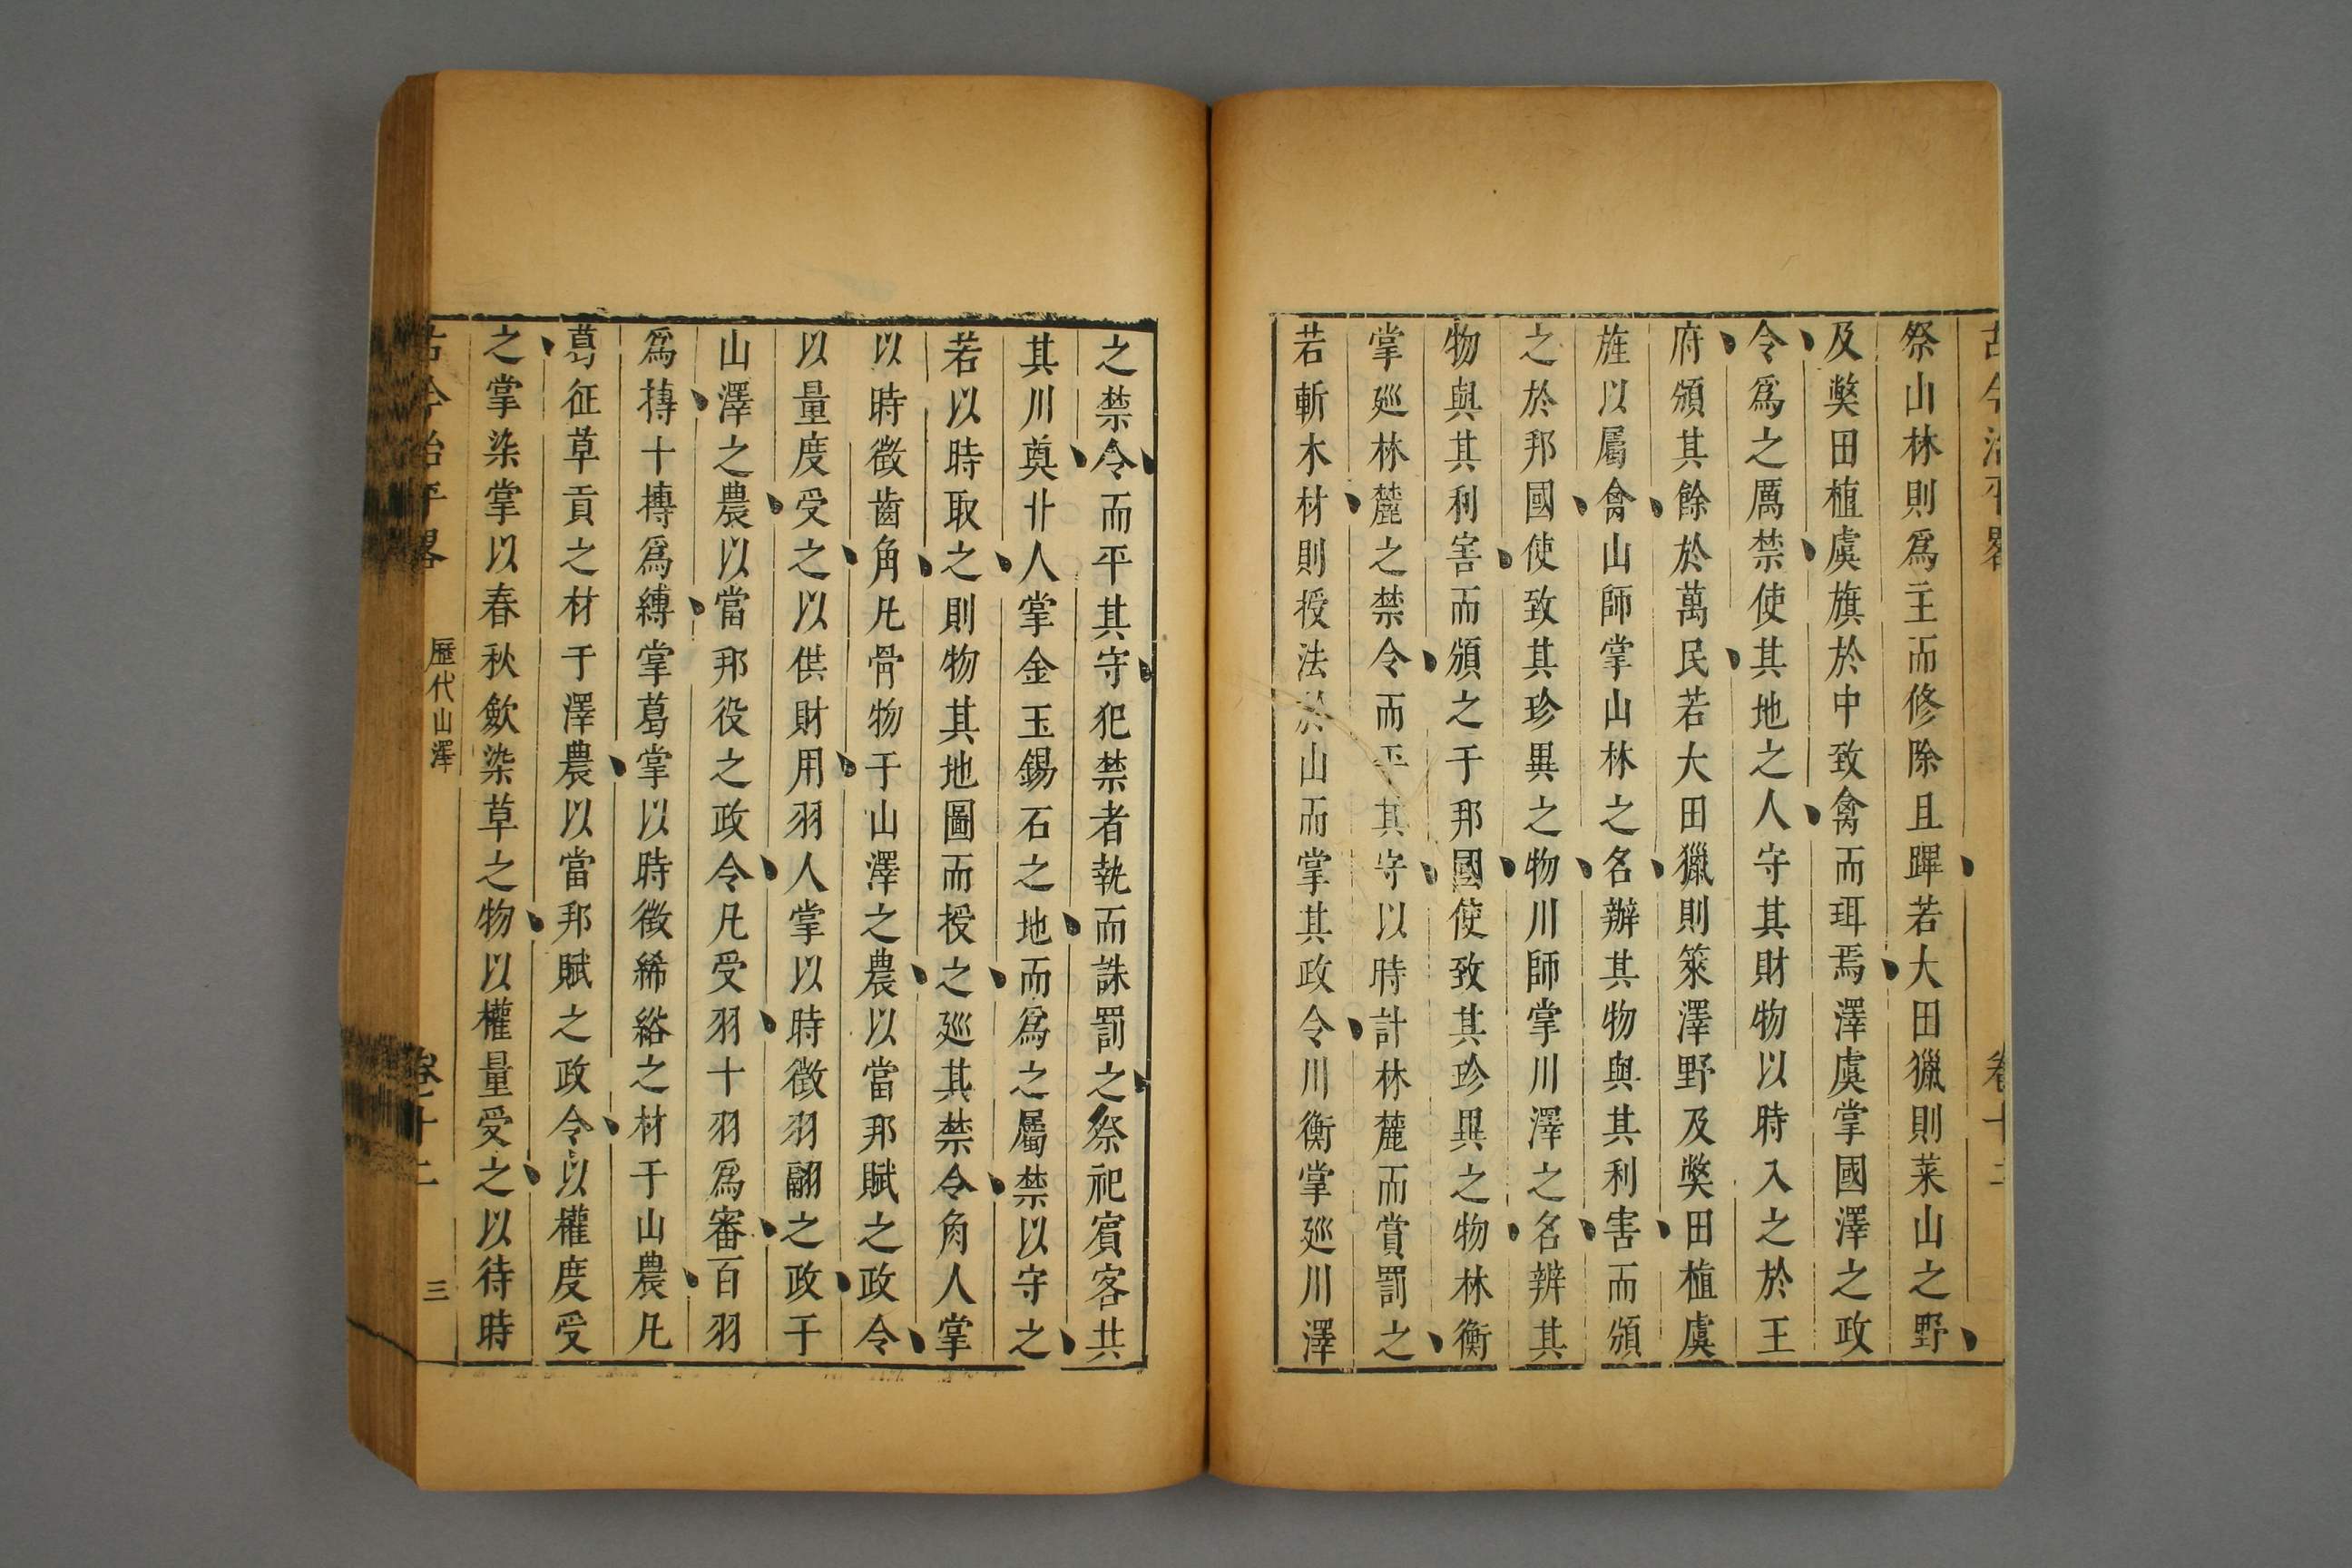 古今治平畧 卷十二
祭山林則爲主而修除且蹕若大田獵則莱山之野
及獘田植虞旗於中致禽而珥焉澤虞掌國澤之政
令爲之厲禁使其地之人守其財物以時入之於王
府頒其餘於萬民若大田獵則萊澤野及獘田植虞
旌以屬禽山師掌山林之名辦其物與其利害而頒
之於邦國使致其珍異之物川師掌川澤之名辨其
物與其利害而頒之于邦國使致其珍異之物林衡
掌廵林麓之禁令而平其守以時計林麓而賞罰之
若斬木材則授法於山而掌其政令川衡掌廵川澤
之禁令而平其守犯禁者執而誅罰之祭祀賔客共
其川奠卝人掌金玉錫石之地而爲之屬禁以守之
若以時取之則物其地圖而授之廵其禁令角人掌
以時徵齒角凡骨物于山澤之農以當邦賦之政令
以量度受之以供財用羽人掌以時徵羽翮之政于
山澤之農以當邦役之政令凡受羽十羽爲審百羽
爲摶十摶爲縛掌葛掌以時徵絺綌之材于山農凡
葛征草貢之材于澤農以當邦賦之政令以權度受
之掌染掌以春秋歛染草之物以權量受之以待時
古今治平畧 歷代山澤 卷十二 三